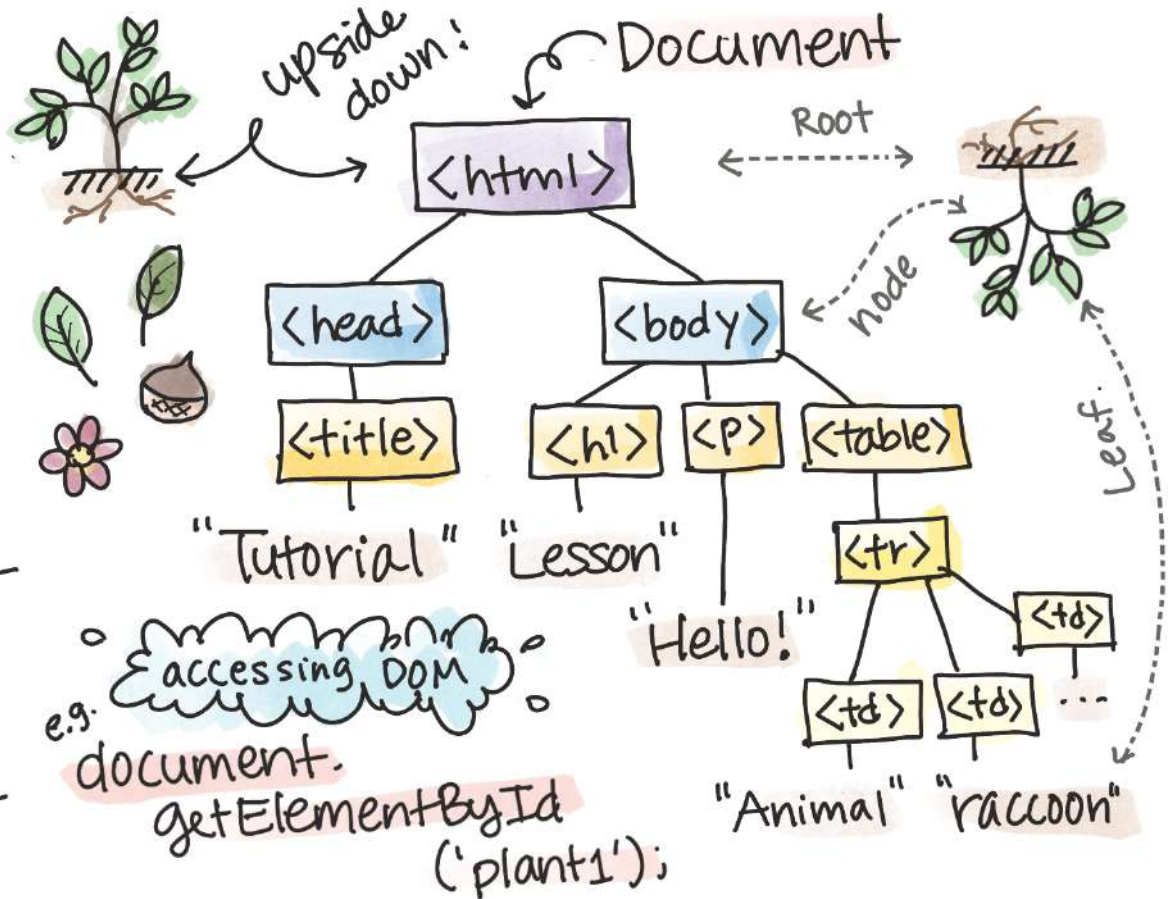 upside
down!
Document
Root
<html>
node
<head>
<body>
Leaf.
<title>
<h1>
<p>
<table>
"Tutorial"
"Lesson"
<tr>
"Hello!"
<td>
...
<td>
<td>
"Animal"
"raccoon"
accessing DOM
e.g.
document.
getElementById
('plant1');